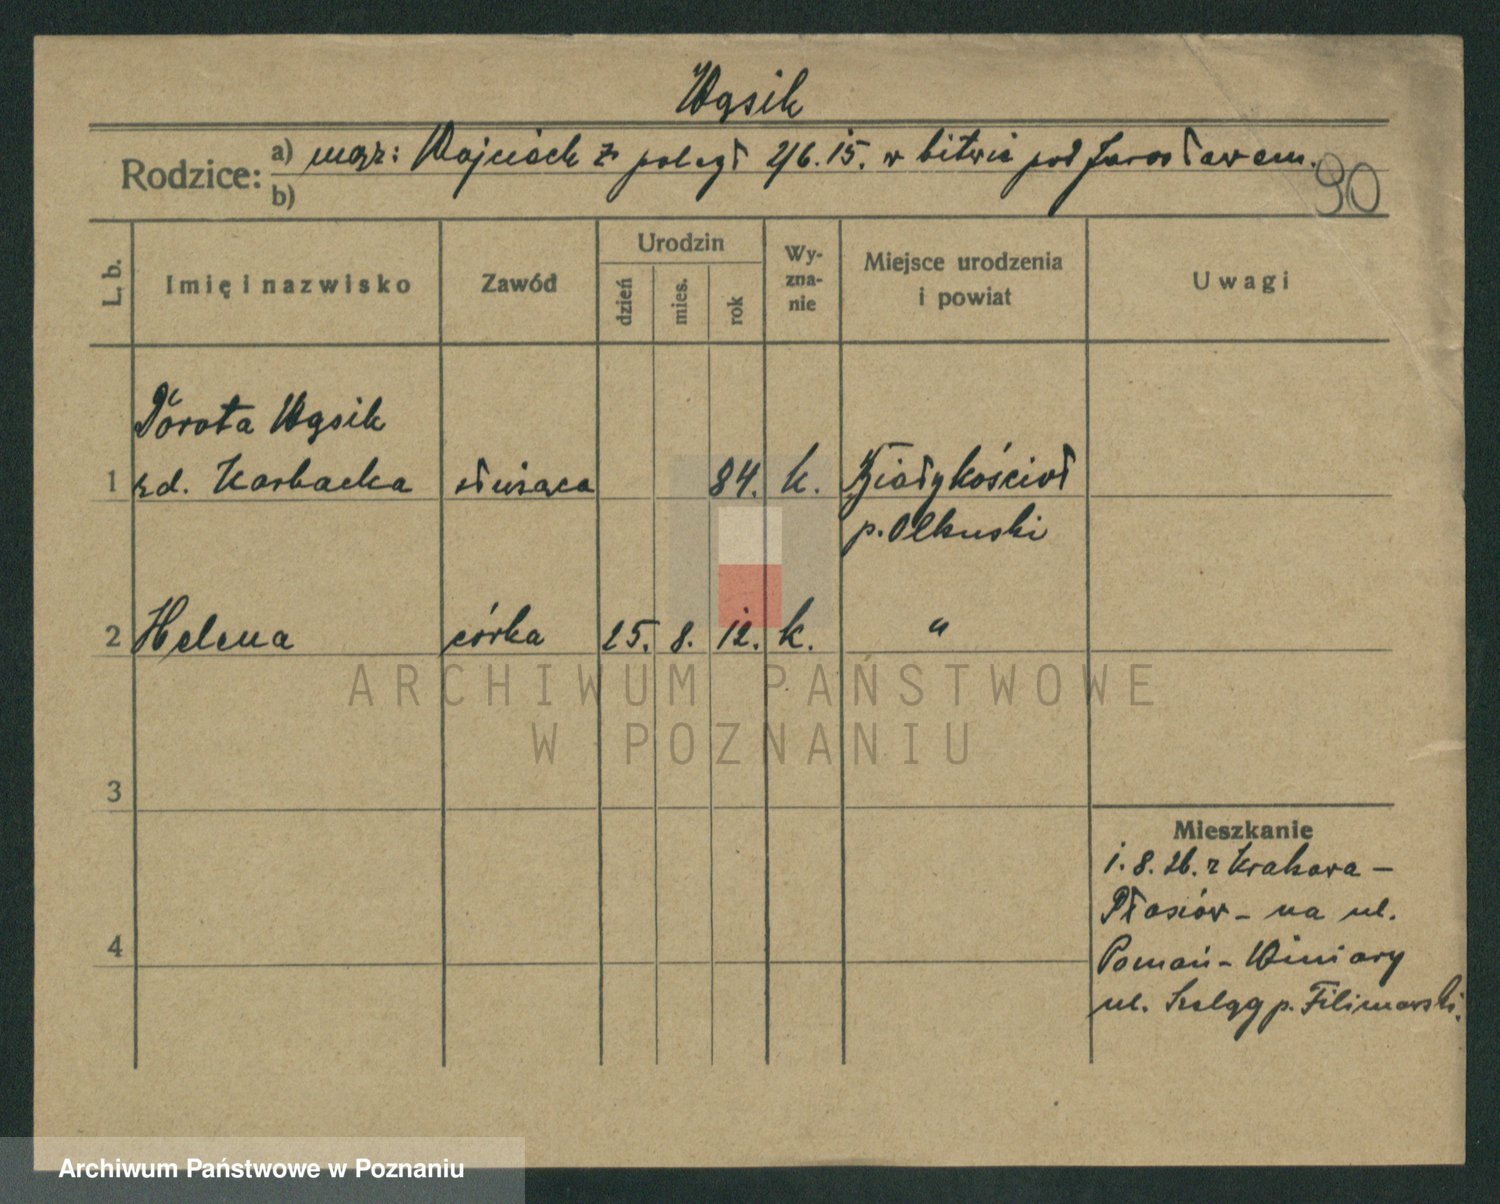 Wąsik
Rodzice: a) mąż: Wojciech z poległ 2/6.15. w bitwie pod Jarosławem.
b)
90
L. b. Imię i nazwisko Zawód Urodzin dzień mies. rok Wy-zna-nie Miejsce urodzenia i powiat Uwagi
Dorota Wąsik
1 zd. Karbacka służąca 84. k. Białykościoł
p. Olkuski
2 Helena córka 25. 8. 12. k. "
ARCHIWUM PAŃSTWOWE
W POZNANIU
3
Mieszkanie
1.8.26. z Krakowa –
na ul.
4
Poznań – Winiary
ul. Szeląg p.
Archiwum Państwowe w Poznaniu